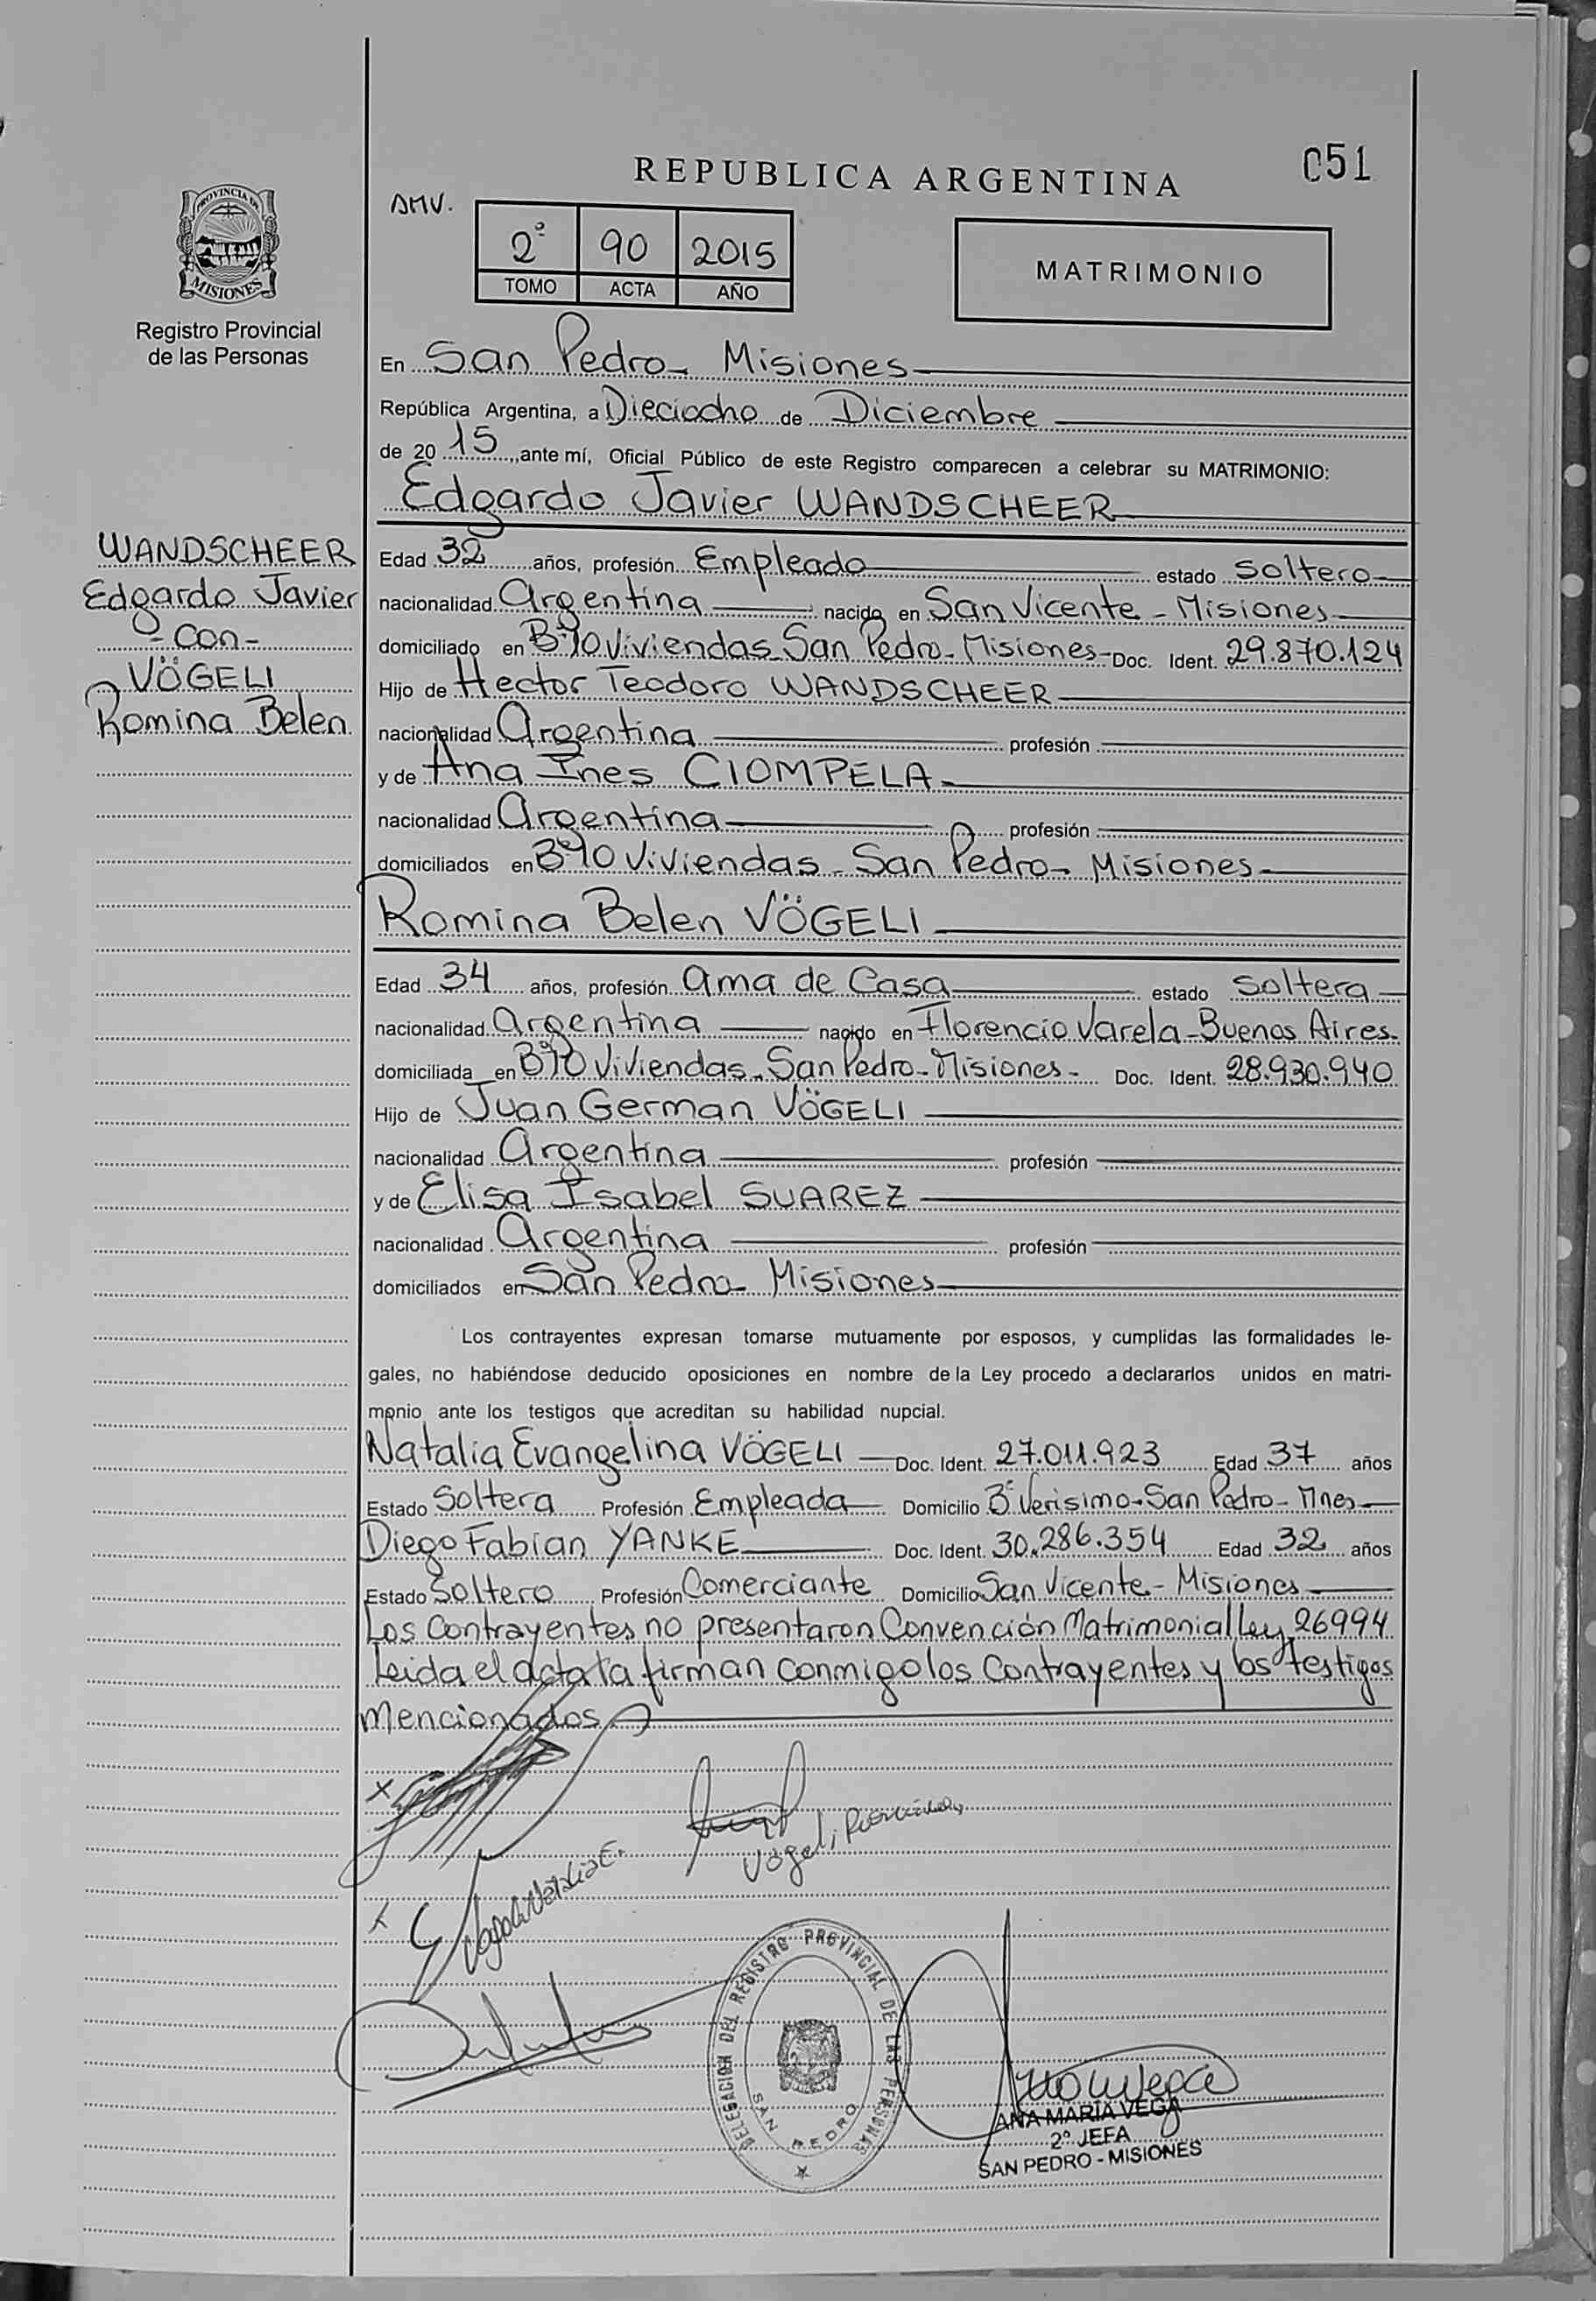 REPUBLICA ARGENTINA
051
AMV.
2º 90 2015
TOMO ACTA AÑO
MATRIMONIO
PROVINCIA DE
MISIONES
Registro Provincial
de las Personas
WANDSCHEER
Edgardo Javier
- con -
VÖGELI
Romina Belen
En San Pedro - Misiones
República Argentina, a Dieciocho de Diciembre
de 20 15, ante mí, Oficial Público de este Registro comparecen a celebrar su MATRIMONIO:
Edgardo Javier WANDSCHEER
Edad 32 años, profesión Empleado estado Soltero
nacionalidad Argentina nacido en San Vicente - Misiones
domiciliado en Bº 90 Viviendas San Pedro - Misiones - Doc. Ident. 29.870.124
Hijo de Hector Teodoro WANDSCHEER
nacionalidad Argentina profesión
y de Ana Ines CIOMPELA
nacionalidad Argentina profesión
domiciliados en Bº 90 Viviendas - San Pedro - Misiones
Romina Belen VÖGELI
Edad 34 años, profesión Ama de Casa estado Soltera
nacionalidad Argentina nacido en Florencio Varela - Buenos Aires.
domiciliada en Bº 90 Viviendas - San Pedro - Misiones - Doc. Ident. 28.930.940
Hijo de Juan German VÖGELI
nacionalidad Argentina profesión
y de Elisa Isabel SUAREZ
nacionalidad Argentina profesión
domiciliados en San Pedro - Misiones
Los contrayentes expresan tomarse mutuamente por esposos, y cumplidas las formalidades le-
gales, no habiéndose deducido oposiciones en nombre de la Ley procedo a declararlos unidos en matri-
monio ante los testigos que acreditan su habilidad nupcial.
Natalia Evangelina VÖGELI Doc. Ident. 27.011.923 Edad 37 años
Estado Soltera Profesión Empleada Domicilio Bº Verisimo - San Pedro - Mnes
Diego Fabian YANKE Doc. Ident. 30.286.354 Edad 32 años
Estado Soltero Profesión Comerciante Domicilio San Vicente - Misiones
Los Contrayentes no presentaron Convención Matrimonial Ley 26994
Leida el acta la firman conmigo los Contrayentes y los testigos
Mencionados
Vögeli
DELEGACION DEL REGISTRO PROVINCIAL DE LAS PERSONAS
SAN PEDRO
ANA MARIA VEGA
2º JEFA
SAN PEDRO - MISIONES